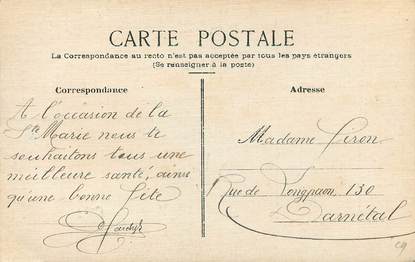 CARTE POSTALE
La Correspondance au recto n'est pas acceptée par tous les pays étrangers
(Se renseigner à la poste)
Correspondance
Adresse
A l'occasion de la
Ste Marie nous te
souhaitons tous une
meilleure santé, ainsi
qu'une bonne fête
Madame Firon
Rue de Longpaon 130
Darnétal